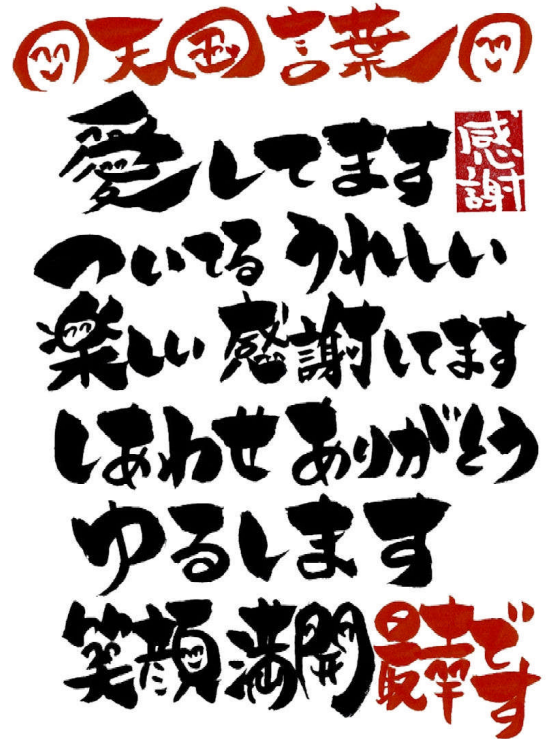 天国言葉
愛してます
感謝
ついてる うれしい
楽しい 感謝してます
しあわせ ありがとう
ゆるします
笑顔満開 最幸です